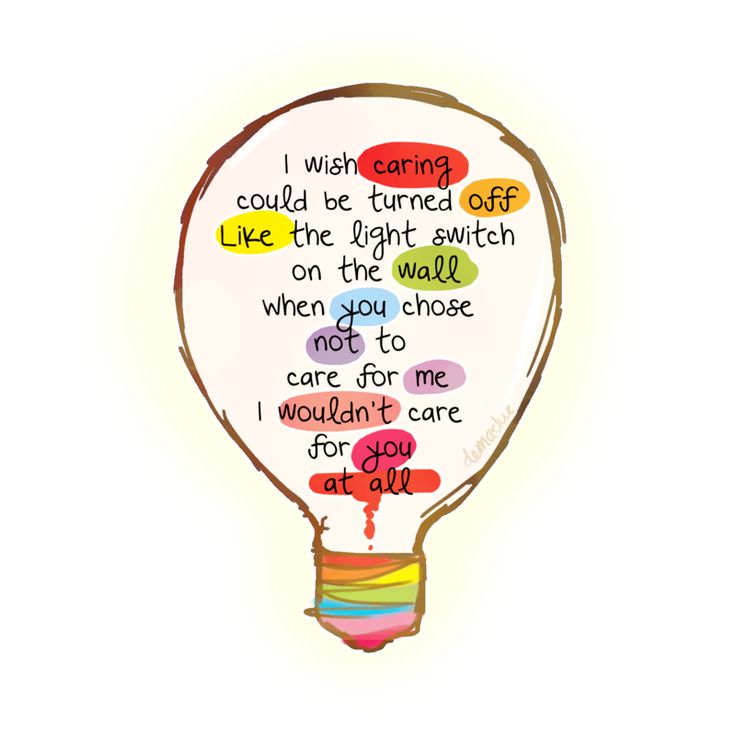 I wish caring
could be turned off
Like the light switch
on the wall
when you chose
not to
care for me
I wouldn't care
for you
at all
demachic